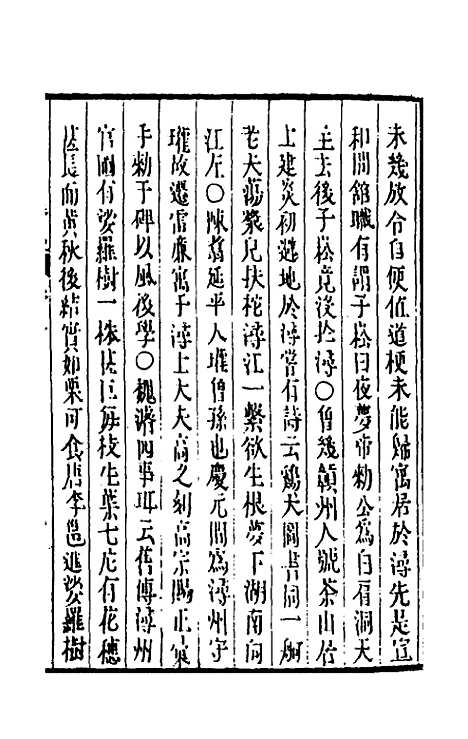 未幾放令自便值道梗未能歸寓居於潯先是宣
和間舘職有謂子崧曰夜夢帝勑公爲白石洞天
主去後子崧竟沒於潯〇曾幾贛州人號茶山
上建炎初避地於潯嘗有詩云鷄犬圖書同一舸
老夫蕩槳兒扶柁潯江一繫欲生根夢下湖南向
江左〇陳 延平人瓘曾孫也慶元間爲潯州守
瓘故遷雷廉寓于潯上大夫高之刻高宗賜正彙
手勑于碑以風後學〇 四事耳云舊傳潯州
官 有娑羅樹一株甚巨每枝生葉七片有花穗
甚長而黃秋後結實如栗可食唐李邕進娑羅樹